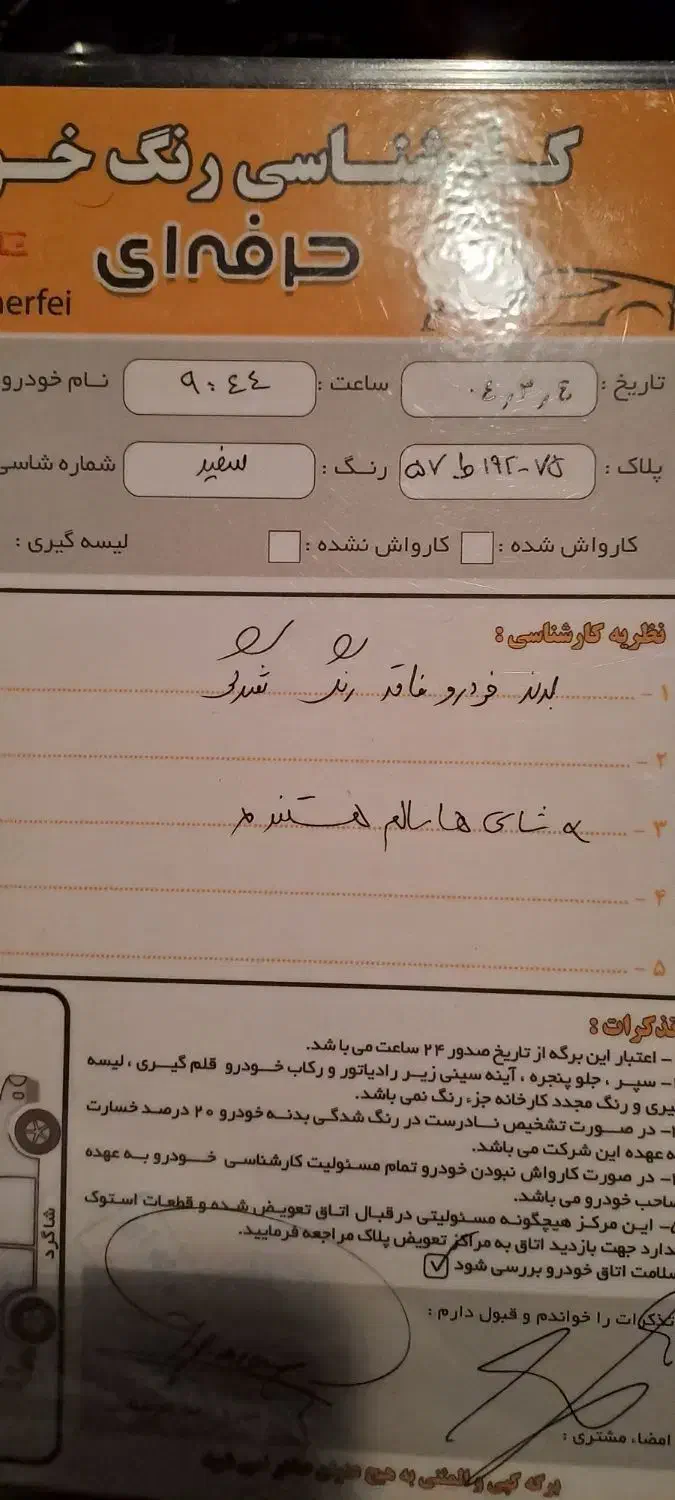 کارشناسی رنگ خـ
حرفه‌ای
erfei
تاریخ :
ساعت : ۹:۴۴
نـام خودرو
پلاک : ۵۷ ط ۱۹۲-۷۵
رنـگ : سفید
شماره شاسی
کارواش شده :
کارواش نشده :
لیسه گیری :
نظریه کارشناسی :
۱ - بدنه خودرو فاقد رنگ
۲ -
۳ - شاسی ها سالم هستند
۴ -
۵ -
تذکرات :
- اعتبار این برگه از تاریخ صدور ۲۴ ساعت می باشد.
- سپـر ، جلو پنجره ، آینه سینی زیـر رادیاتور و رکاب خـودرو قلم گیـری ، لیسه
گیری و رنگ مجدد کارخانه جزء رنگ نمی باشد.
- در صـورت تشخیص نـادرست در رنگ شدگـی بدنـه خودرو ۲۰ درصـد خسارت
به عهده این شرکت می باشد.
- در صورت کارواش نبودن خودرو تمام مسئولیت کارشناسی خـودرو بـه عهده
صاحب خودرو می باشد.
۵- این مرکز هیچگونه مسئولیتی در قبال اتاق تعویـض شده و قطعات استوک
ندارد جهت بازدید اتاق به مراکز تعویض پلاک مراجعه فرمایید.
سلامت اتاق خودرو بررسی شود
تذکرات را خواندم و قبول دارم :
شاگرد
امضاء مشتری :